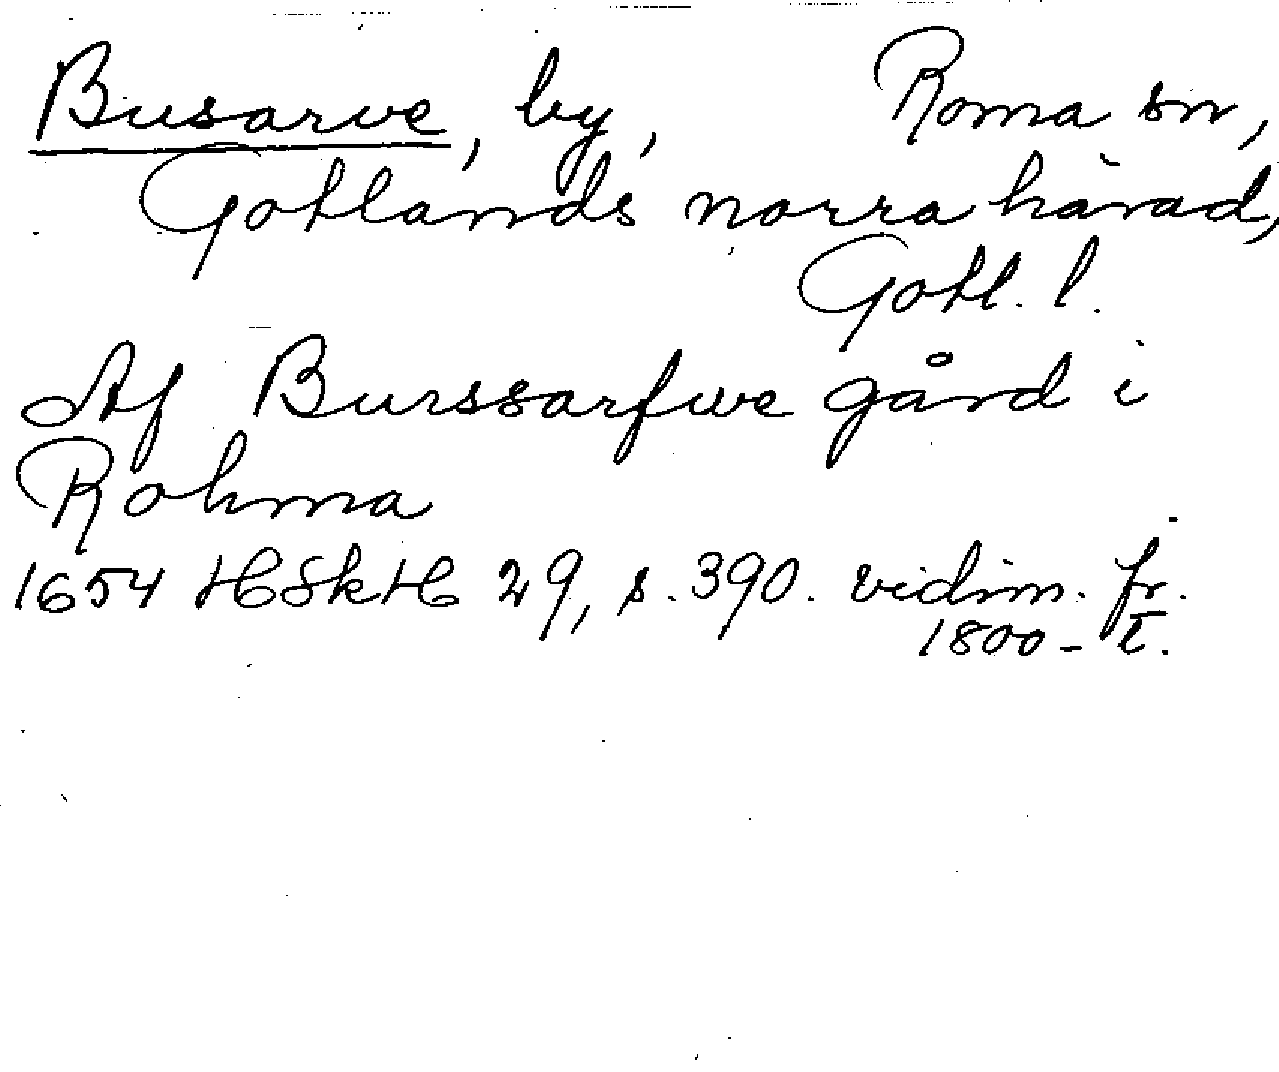 Busarve, by, Roma sn,
Gotlands norra härad,
Gotl. l.
Af Burssarfwe gård i
Rohma
1654 HSkH 29, s. 390. vidim. fr.
1800-t.